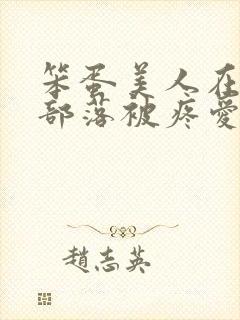 笨蛋美人在
部落被疼爱
趙志英